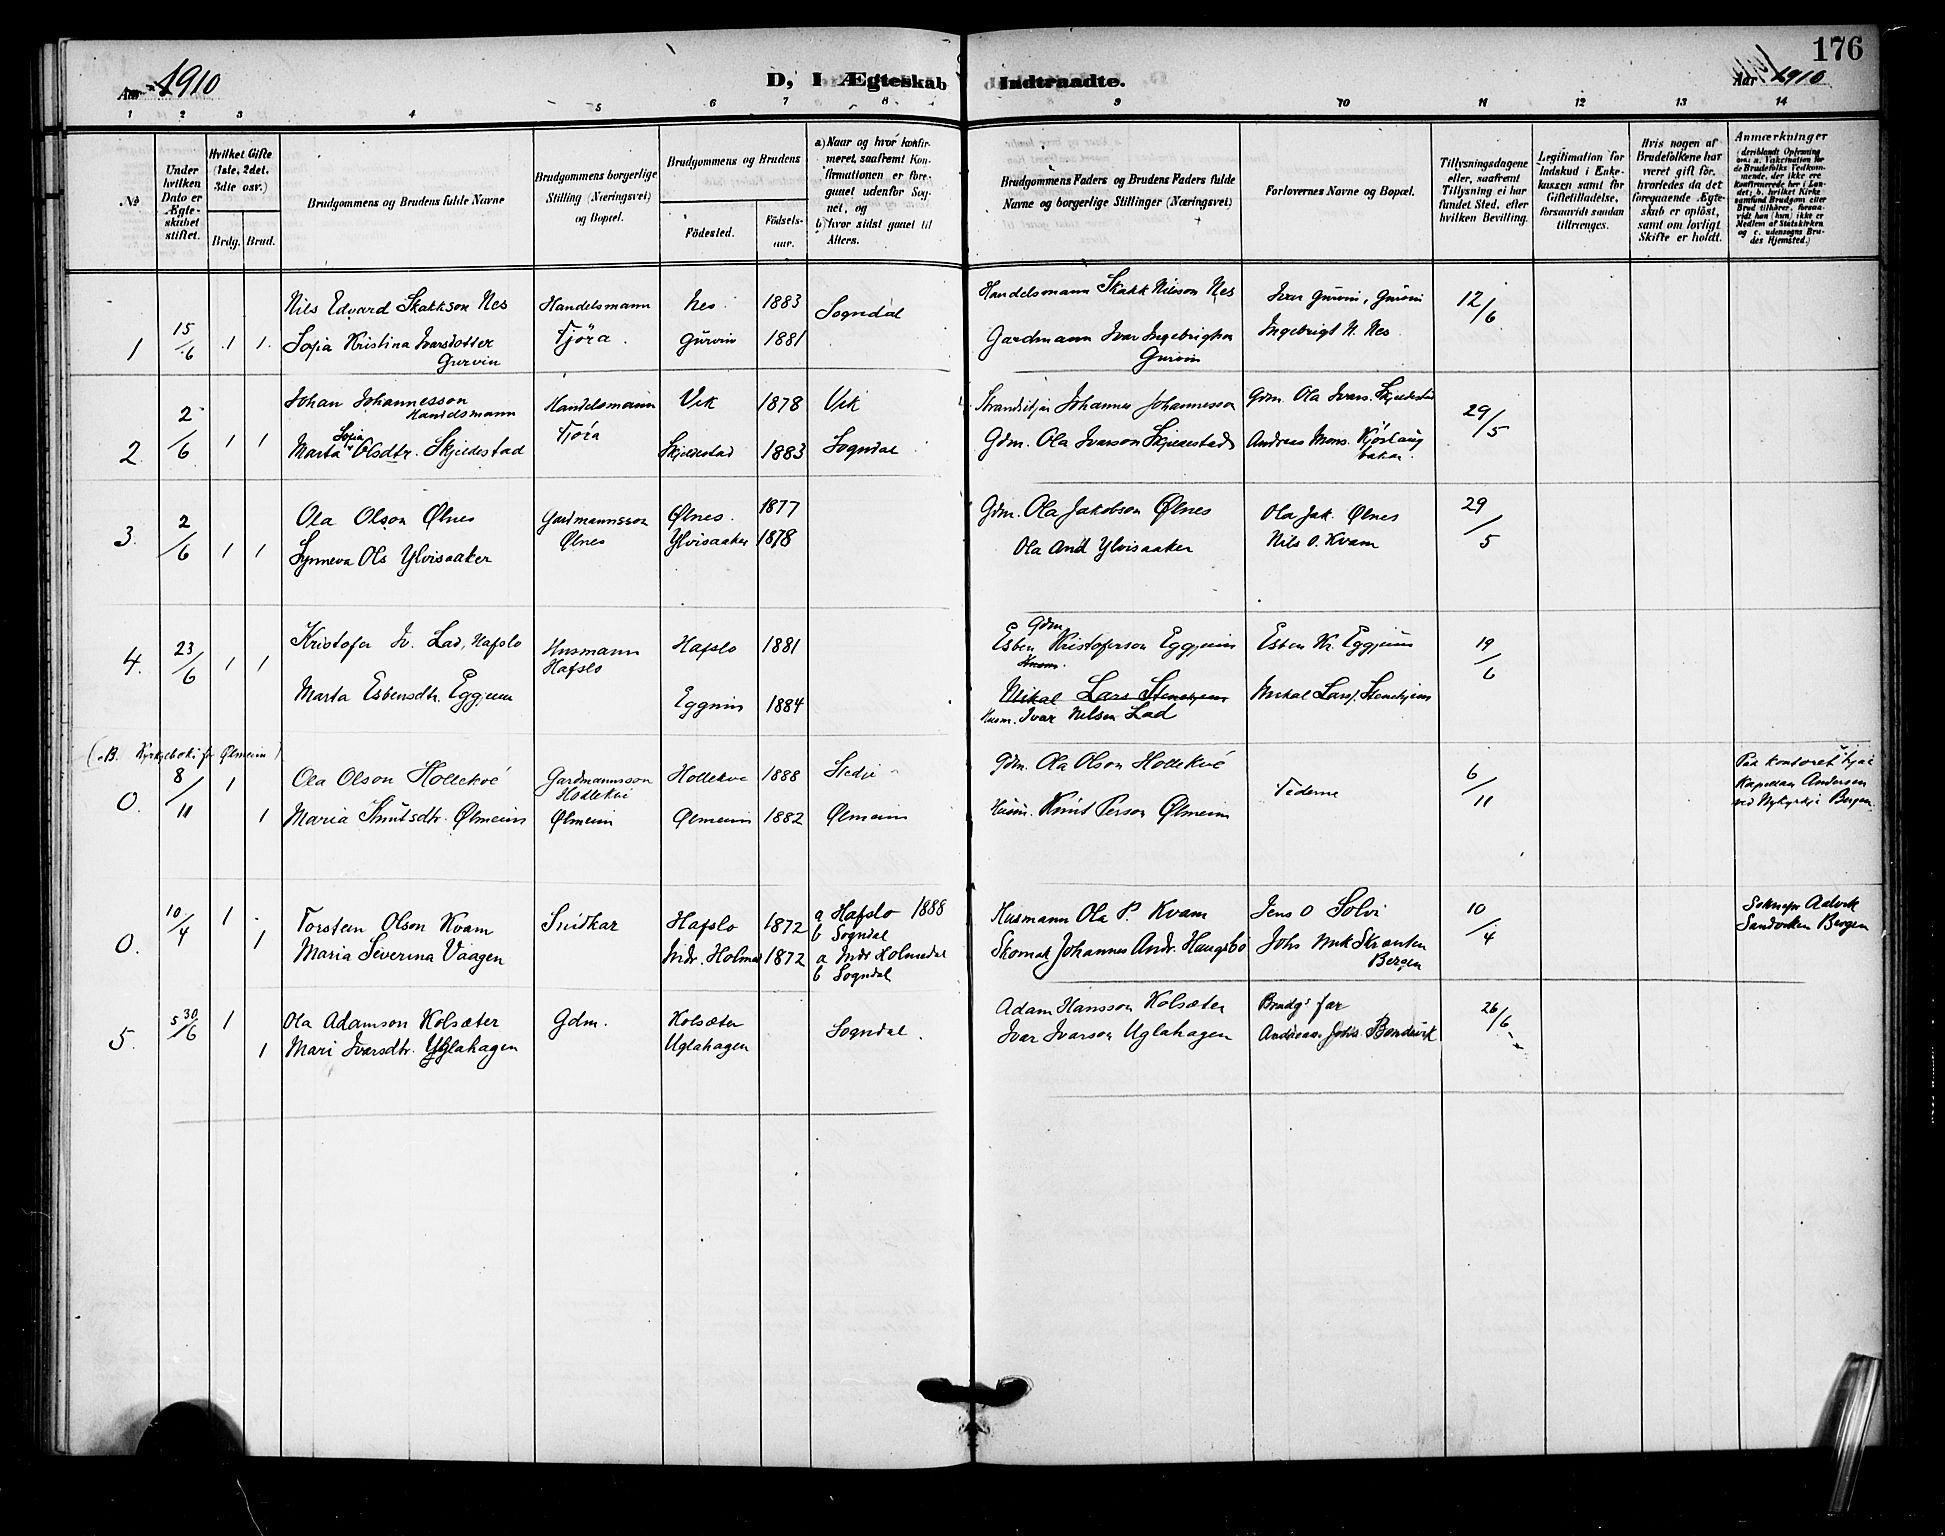 176
Aar 1910
D, I Ægteskab Indtraadte.
Aar 1910
1 2 3 4 5 6 7 8 9 10 11 12 13 14
No
Under hvilken Dato er Ægteskabet stiftet.
Hvilket Gifte (1ste, 2det, 3die osv.)
Brdg. Brud.
Brudgommens og Brudens fulde Navne
Brudgommens borgerlige Stilling (Næringsvei) og Bopæl.
Brudgommens og Brudens
Fødested.
Fødselsaar.
a) Naar og hvor konfirmeret, saafremt Konfirmationen er foregaaet udenfor Sognet, og
b) hvor sidst gaaet til Alters.
Brudgommens Faders og Brudens Faders fulde Navne og borgerlige Stillinger (Næringsvei)
Forlovernes Navne og Bopæl.
Tillysningsdagene eller, saafremt Tillysning ei har fundet Sted, efter hvilken Bevilling.
Legitimation for Indskud i Enkekassen samt for Giftetilladelse, forsaavidt saadan tiltrænges.
Hvis nogen af Brudefolkene har været gift før, hvorledes da det foregaaende Ægteskab er opløst, samt om lovligt Skifte er holdt.
Anmærkninger (deriblandt Opførsing om: a. Vakcination for de Brudefolks Vedkommende, der ikke ere konfirmerede her i Landet; b. hvilket Kirkesamfund Brudgom eller Brud tilhører, forsaavidt han (hun) ikke er Medlem af Statskirken og c. udensogns Brudes Hjemsted.)
1 15/6 1 1.
Nils Edvard Skakkson Nes Handelsmann Nes 1883 Sogndal Handelsmann Skakk Nilsson Nes Ivar Gurvin, Gurvin 12/6
Sofia Kristina Ivarsdotter Gurvin Fjøra. Gurvin 1881 Gardmann Ivar Ingebrigtson Gurvin Ingebrigt N. Nes
2. 2/6 1 1
Johan Johannesson Handelsmann Handelsmann Vik 1878 Vik Johannes Johannesson Gdm. Ola Ivars. Skjeldestad 29/5
Marta Sofia Olsdtr. Skjeldestad Fjøra Skjeldestad 1883 Sogndal Gdm. Ola Ivarson Skjeldestad Andreas Mons. Kjørlaug bakar.
3. 2/6 1 1
Ola Olson Ølnes Gardmannsson Ølnes. 1877 Gdm. Ola Jakobson Ølnes Ola Jak. Ølnes 29/5
Synneva Ols Ylvisaaker Ølnes Ylvisaaker 1878 Ola And Ylvisaaker Nils O. Kvam
4. 23/6 1 1
Kristofer Iv. Lad, Hafslo Husmann Hafslo Hafslo 1881 Gdm Esben Kristoferson Eggjum Esben Kr. Eggjum 19/6
Marta Esbensdtr. Eggjum Eggjum 1884 Husm. Mikal Lars Stenehjem Mikal Lars. Stenehjem
Husm. Ivar Nilsen Lad
(B. Kyrkjebok for Ølmeim)
0. 8/11 1 1
Ola Olson Hollekve Gardmannsson Hodlekve Hollekve 1888 Stedje Gdm. Ola Olson Hollekve Federne 6/11 Paa kontoret hjaa Kapellan Andersen ved Nykyrkja i Bergen.
Maria Knutsdtr. Ølmeim Ølmeim Ølmeim 1882 Ølmeim Husm. Knut Person Ølmeim
0. 10/4 1 1
Torstein Olson Kvam Snidkar Hafslo 1872 a Hafslo 1888 b Sogndal Husmann Ola P. Kvam Jens O Solvi 10/4 Soknepr Aalvik Sandviken Bergen
Maria Severina Vaagen Indr. Holmed 1872 a Indr Holmedal b Sogndal Skomak Johannes Andr. Haugsbø Johs Mik Skranten Bergen
5. 30/6 1 1
Ola Adamson Kolsæter Gdm. Kolsæter Sogndal. Adam Hansson Kolsæter Brudgs far 26/6
Mari Ivarsdtr. Uglahagen Uglahagen Ivar Ivarson Uglahagen Andreas Johs. Bondevik